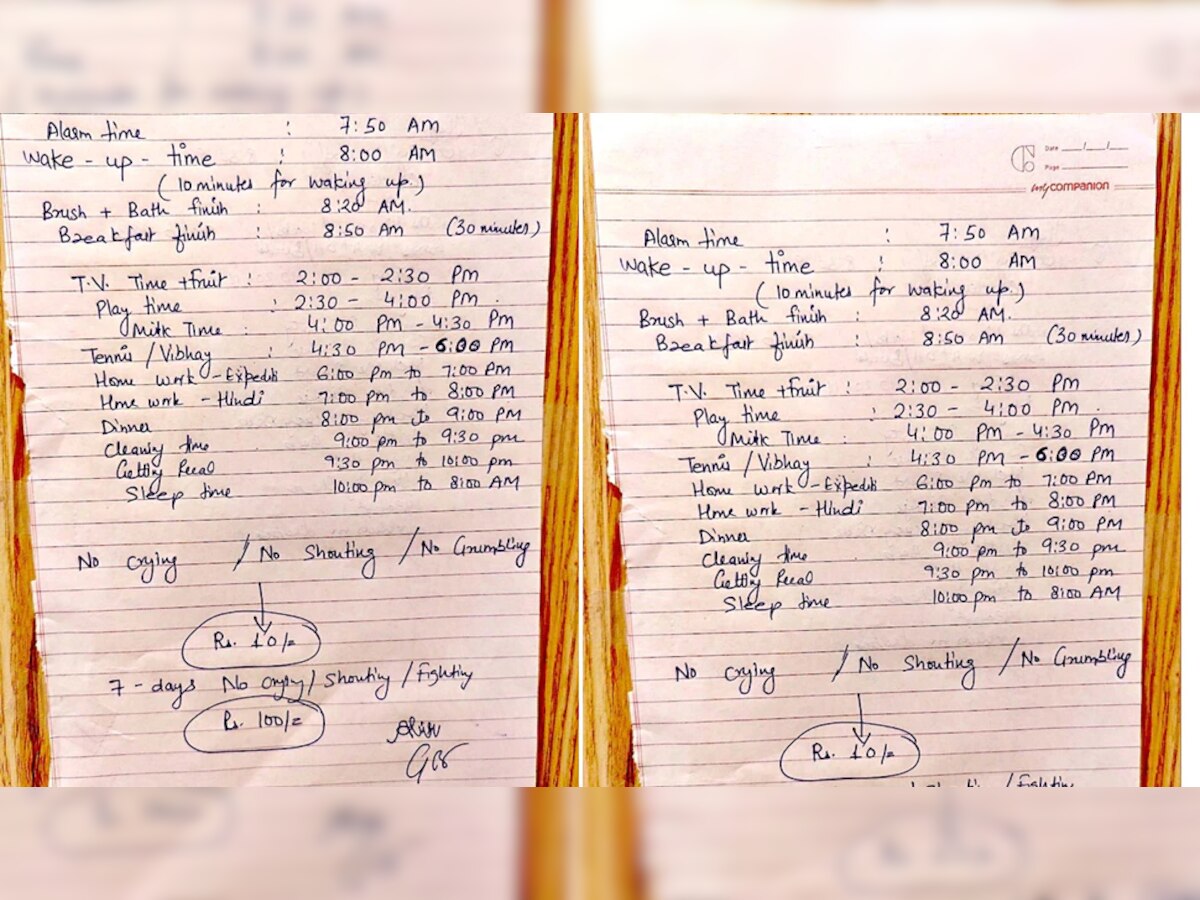 Alarm time : 7:50 AM
Wake - up - time : 8:00 AM
(10 minutes for waking up.)
Brush + Bath finish : 8:20 AM.
Breakfast finish : 8:50 AM (30 minutes)
T.V. Time +fruit : 2:00 - 2:30 PM
Play time : 2:30 - 4:00 PM.
Milk Time : 4:00 PM - 4:30 PM
Tennis / Vibhay : 4:30 PM - 6:00 PM
Home work - Expediti 6:00 Pm to 7:00 PM
Home work - Hindi 7:00 pm to 8:00 PM
Dinner 8:00 pm to 9:00 PM
Cleaning time 9:00 pm to 9:30 pm
9:30 pm to 10:00 pm
Sleep time 10:00 pm to 8:00 AM
No crying / No Shouting / No Grumbling
Rs. 10/=
7 - days No crying / Shouting / Fighting
Rs. 100/=
Date __/__/__
Page
mycompanion
Alarm time : 7:50 AM
Wake - up - time : 8:00 AM
(10 minutes for waking up.)
Brush + Bath finish : 8:20 AM.
Breakfast finish : 8:50 AM (30 minutes)
T.V. Time +fruit : 2:00 - 2:30 PM
Play time : 2:30 - 4:00 PM.
Milk Time : 4:00 PM - 4:30 PM
Tennis / Vibhay : 4:30 PM - 6:00 PM
Home work - Expediti 6:00 Pm to 7:00 PM
Home work - Hindi 7:00 pm to 8:00 PM
Dinner 8:00 pm to 9:00 PM
Cleaning time 9:00 pm to 9:30 pm
9:30 pm to 10:00 pm
Sleep time 10:00 pm to 8:00 AM
No crying / No Shouting / No Grumbling
Rs. 10/=